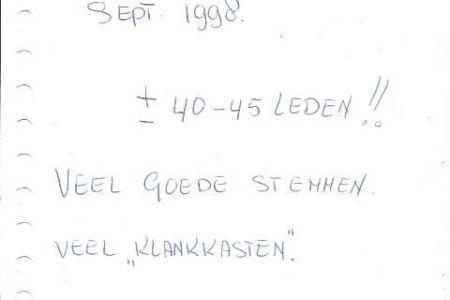 SEPT. 1998.
± 40-45 LEDEN!!
VEEL GOEDE STEMMEN.
VEEL „KLANKKASTEN".